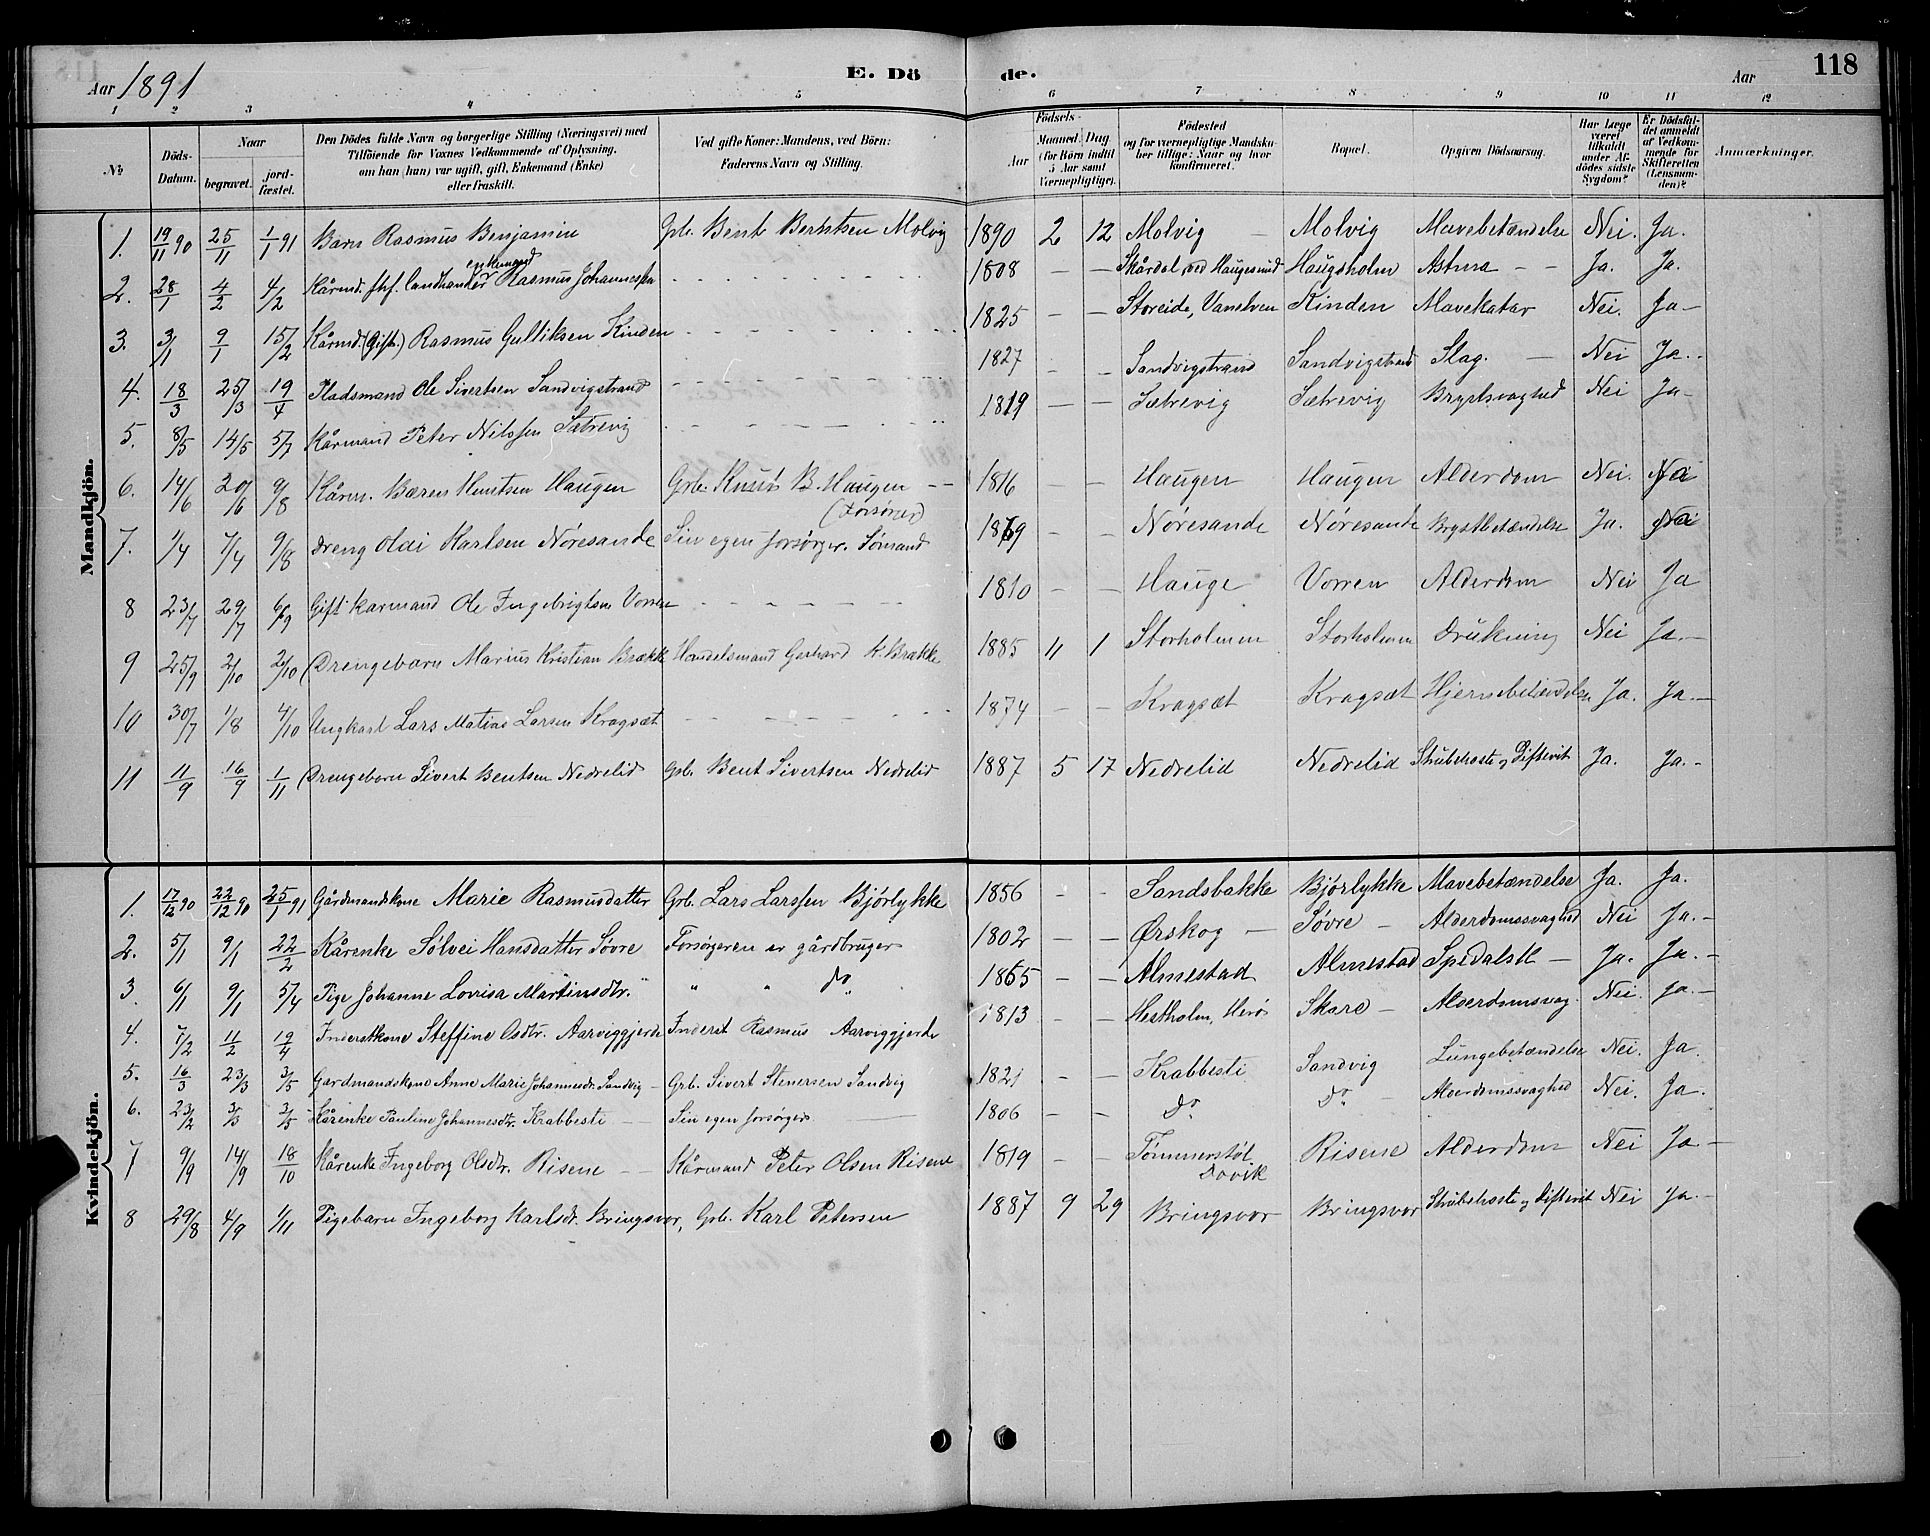 Aar 1891
E. Dö de.
Aar
118
1 2 3 4 5 6 7 8 9 10 11 12
No
Döds-Datum.
Naar
begravet.
jordfæstet.
Den Dödes fulde Navn og borgerlige Stilling (Næringsvei) med Tilföiende for Voxnes Vedkommende af Oplysning, om han (hun) var ugift, gift, Enkemand (Enke) eller fraskilt.
Ved gifte Koner: Mandens, ved Börn: Faderens Navn og Stilling.
Födsels-
Aar
Maaned. Dag (for Börn indtil 5 Aar samt Værnepligtige).
Födested og for værnepligtige Mandskaber tillige: Naar og hvor konfirmeret.
Bopæl.
Opgiven Dödsaarsag.
Har Læge været tilkaldt under Afdödes sidste Sygdom?
Er Dödsfaldet anmeldt af Vedkommende for Skifteretten (Lensmanden)?
Anmærkninger.
Mandkjön.
1. 19/11 90 25/11 1/1 91 Barn Rasmus Benjamin Grb. Bent Berntsen Molvig 1890 2 12 Molvig – Molvig Mavebetændelse Nei. Ja.
enkemand
2. 28/1 4/2 4/2 Kårmd. fhf. landhandler Rasmus Johannessen 1808 – – Skårdal ved Haugesund Haugsholm Astma – – Ja. Ja.
3. 3/1 9/1 15/2 Kårmd. (Gift.) Rasmus Gulliksen Kinden 1825 – – Storeide, Vanelven Kinden Mavekatar Nei. Ja –
4. 18/3 25/3 19/4 Pladsmand Ole Sivertsen Sandvigstrand 1827 – – Sandvigstrand Sandvigstrand Slag. – Nei Ja.
5. 8/5 14/5 5/7 Kårmand Peter Nilssen Sætrevig 1819 – – Sætrevig Sætrevig Brystsvaghed Nei Ja –
6. 14/6 20/6 9/8 Kårm. Bæren Knutsen Haugen Grb. Knut B. Haugen – – 1816 – – Haugen Haugen Alderdom Nei. Nei
(Forsørger)
7. 1/4 7/4 9/8 Dreng Oldi Karlsen Nøresande Sin egen forsørger. Sømand 1869 – – Nøresande Nøresande Brystbetændelse Ja. Nei
8 23/7 29/7 6/9 Gift karmand Ole Ingebrigtsen Vorren 1810 – – Hauge Vorren Alderdom Nei Ja
9 25/9 2/10 20/10 Drengebarn Marius Kristian Brække Handelsmand Gerhard K. Brække 1885 11 1 Storholmen Storholmen Drukning Nei Ja. –
10 30/7 1/8 4/10 Ungkarl Lars Matias Larsen Kragsæt 1874 – – Kragsæt Kragsæt Hjernebetændelse Ja. Ja. –
11 11/9 16/9 1/11 Drengebarn Sivert Bentsen Nedrelid Grb. Bent Sivertsen Nedrelid 1887 5 17 Nedrelid Nedrelid Strubehoste og Difterit Ja. Ja. –
Kvindekjön.
1. 17/12 90 22/12 90 25/1 91 Gårdmandskone Marie Rasmusdatter Grb. Lars Larssen Bjørlykke 1856 – – Sandsbakke Bjørlykke Mavebetændelse Ja. Ja.
2. 5/1 9/1 22/2 Kårenke Sølvei Hansdatter Søvre Forsørgeren er gårdbruger 1802 – – Ørskog – Søvre – Alderdomssvaghed Nei Ja. –
3. 6/1 9/1 5/4 Pige Johanne Lovisa Martinsdtr. " " " Do 1865 – – Almestad Almestad Spedalsk – Ja. Ja. –
4. 7/2 11/2 19/4 Inderstkone Steffine Osdtr. Aarviggjerde Inderst Rasmus Aarviggjerde 1813 – – Hestholm, Herö Skare – Alderdomsvag. Nei. Ja. –
5. 16/3 23/3 3/5 Gardmandskone Anne Marie Johannesdr. Sandvig – Grb. Sivert Stenersen Sandvig 1821 – – Krabbesti Sandvig Lungebetændelse Nei. Ja.
6. 23/2 3/3 3/5 Kårenke Pauline Johannesdtr. Krabbesti – Sin egen forsørger 1806 – – Do Do – Alderdomssvaghed Nei. Ja.
7 9/9 14/9 18/10 Kårenke Ingeborg Olsdtr. Risene – – Kårmand Peter Olsen Risene 1819 – – Tømmerstøl Risene Alderdom Nei Ja –
Dovik
8 29/8 4/9 1/11 Pigebarn Ingeborg Karlsdr. Bringsvor, Grb. Karl Petersen 1887 9 29 Bringsvor Bringsvor Strubehoste og Difterit Nei Ja. –